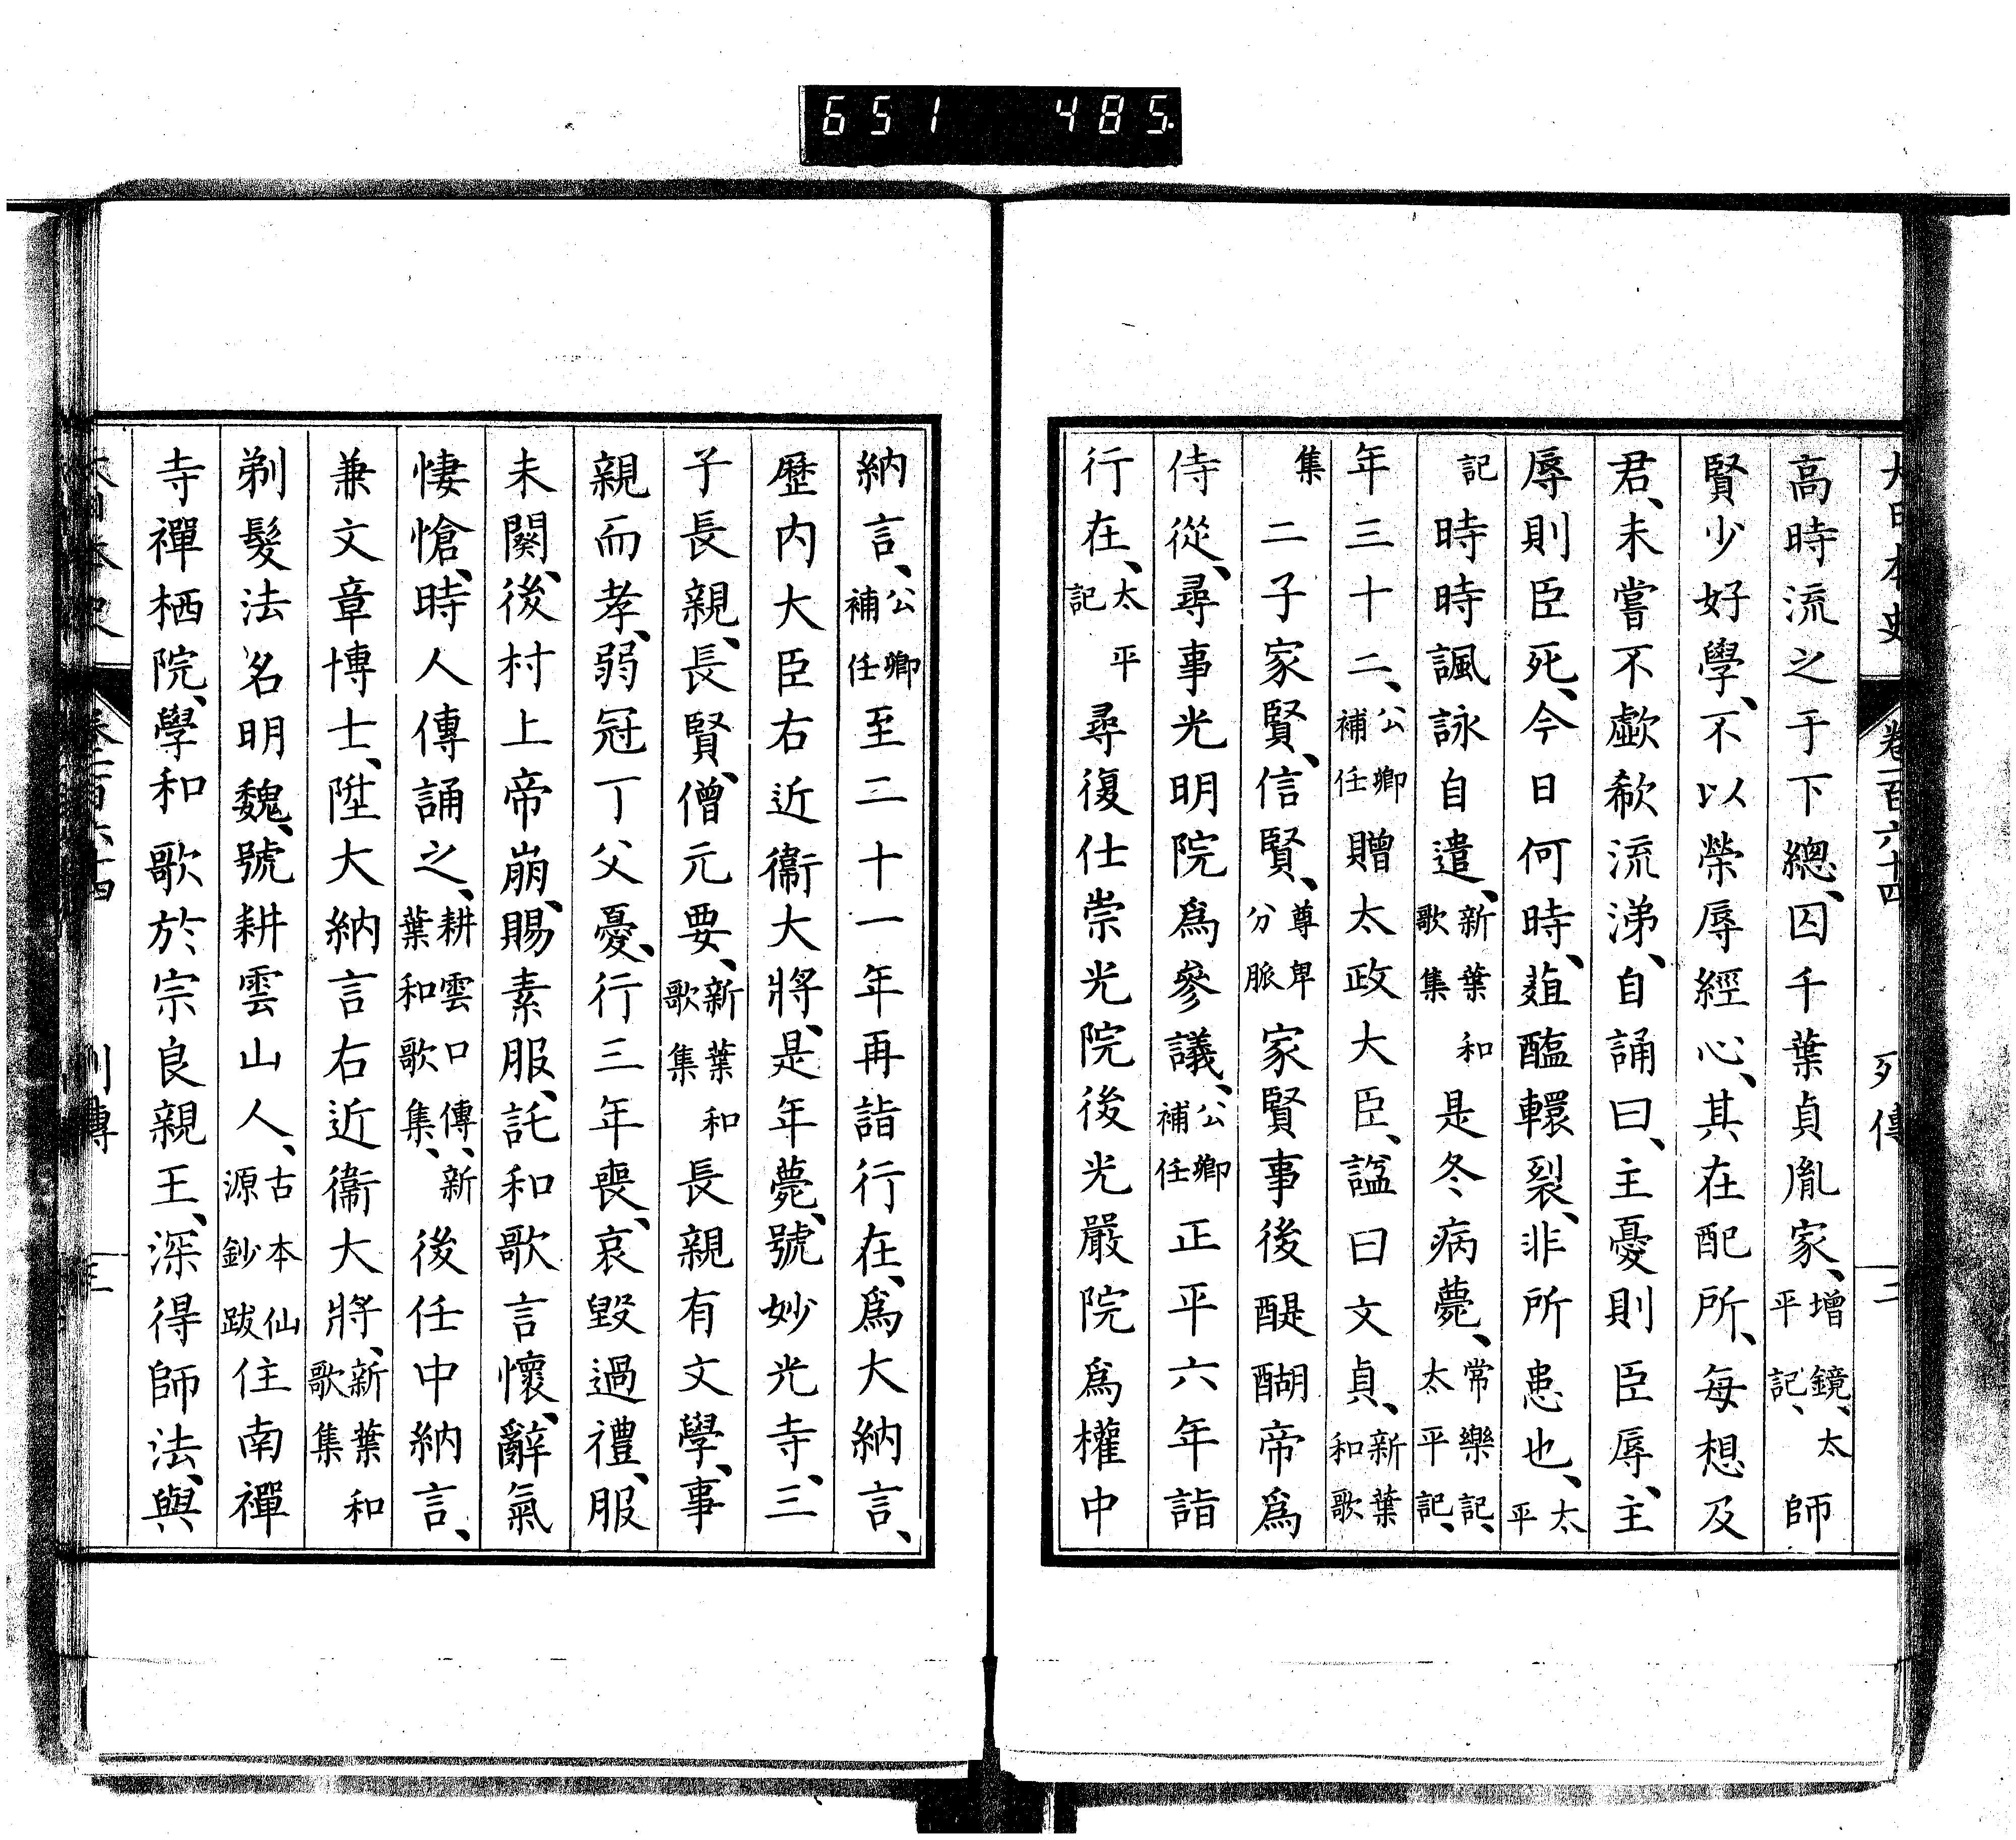 651 485
大日本史 卷一百六十四 列傳 二
高時流之于下總、囚千葉貞胤家、增鏡、太平記、師
賢少好學、不以榮辱經心、其在配所、每想及
君、未嘗不歔欷流涕、自誦曰、主憂則臣辱、主
辱則臣死、今日何時、葅醢轘裂、非所患也、太平
記時時諷詠自遣、新葉和歌集是冬病薨、常樂記、太平記、
年三十二、公卿補任贈太政大臣、諡曰文貞、新葉和歌
集二子家賢、信賢、尊卑分脈家賢事後醍醐帝爲
侍從、尋事光明院爲參議、公卿補任正平六年詣
行在、太平記尋復仕崇光院後光嚴院爲權中
納言、公卿補任至二十一年再詣行在、爲大納言、
歷内大臣右近衞大將、是年薨、號妙光寺、三
子長親、長賢、僧元要、新葉和歌集長親有文學、事
親而孝、弱冠丁父憂、行三年喪、哀毀過禮、服
未闋、後村上帝崩、賜素服、託和歌言懷、辭氣
悽愴、時人傳誦之、耕雲口傳、新葉和歌集、後任中納言、
兼文章博士、陞大納言右近衞大將、新葉和歌集
剃髮法名明魏、號耕雲山人、古本仙源鈔跋住南禪
寺禪栖院、學和歌於宗良親王、深得師法、與
大日本史 卷一百六十四 列傳 三